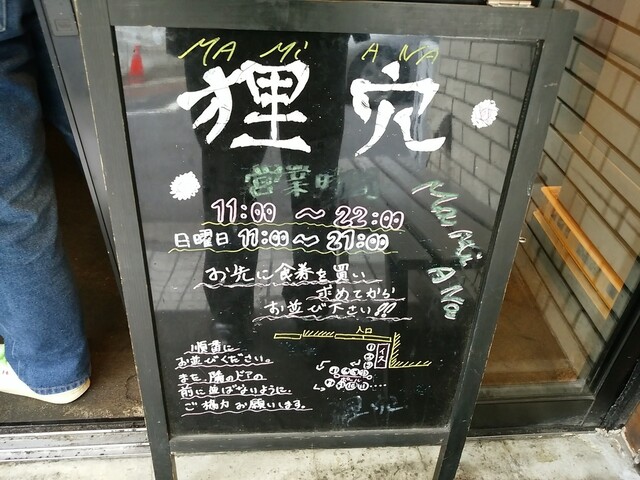 MA Mi A NA
狸穴
営業時間
11:00 ～ 22:00
日曜日 11:00～21:00
Ma Mi A Na
お先に食券を買い
求めてから
お並び下さい!!!
入口
イス
順番に
お並びください。
また、隣のドアの
前に並ばないように
ご協力お願いします。